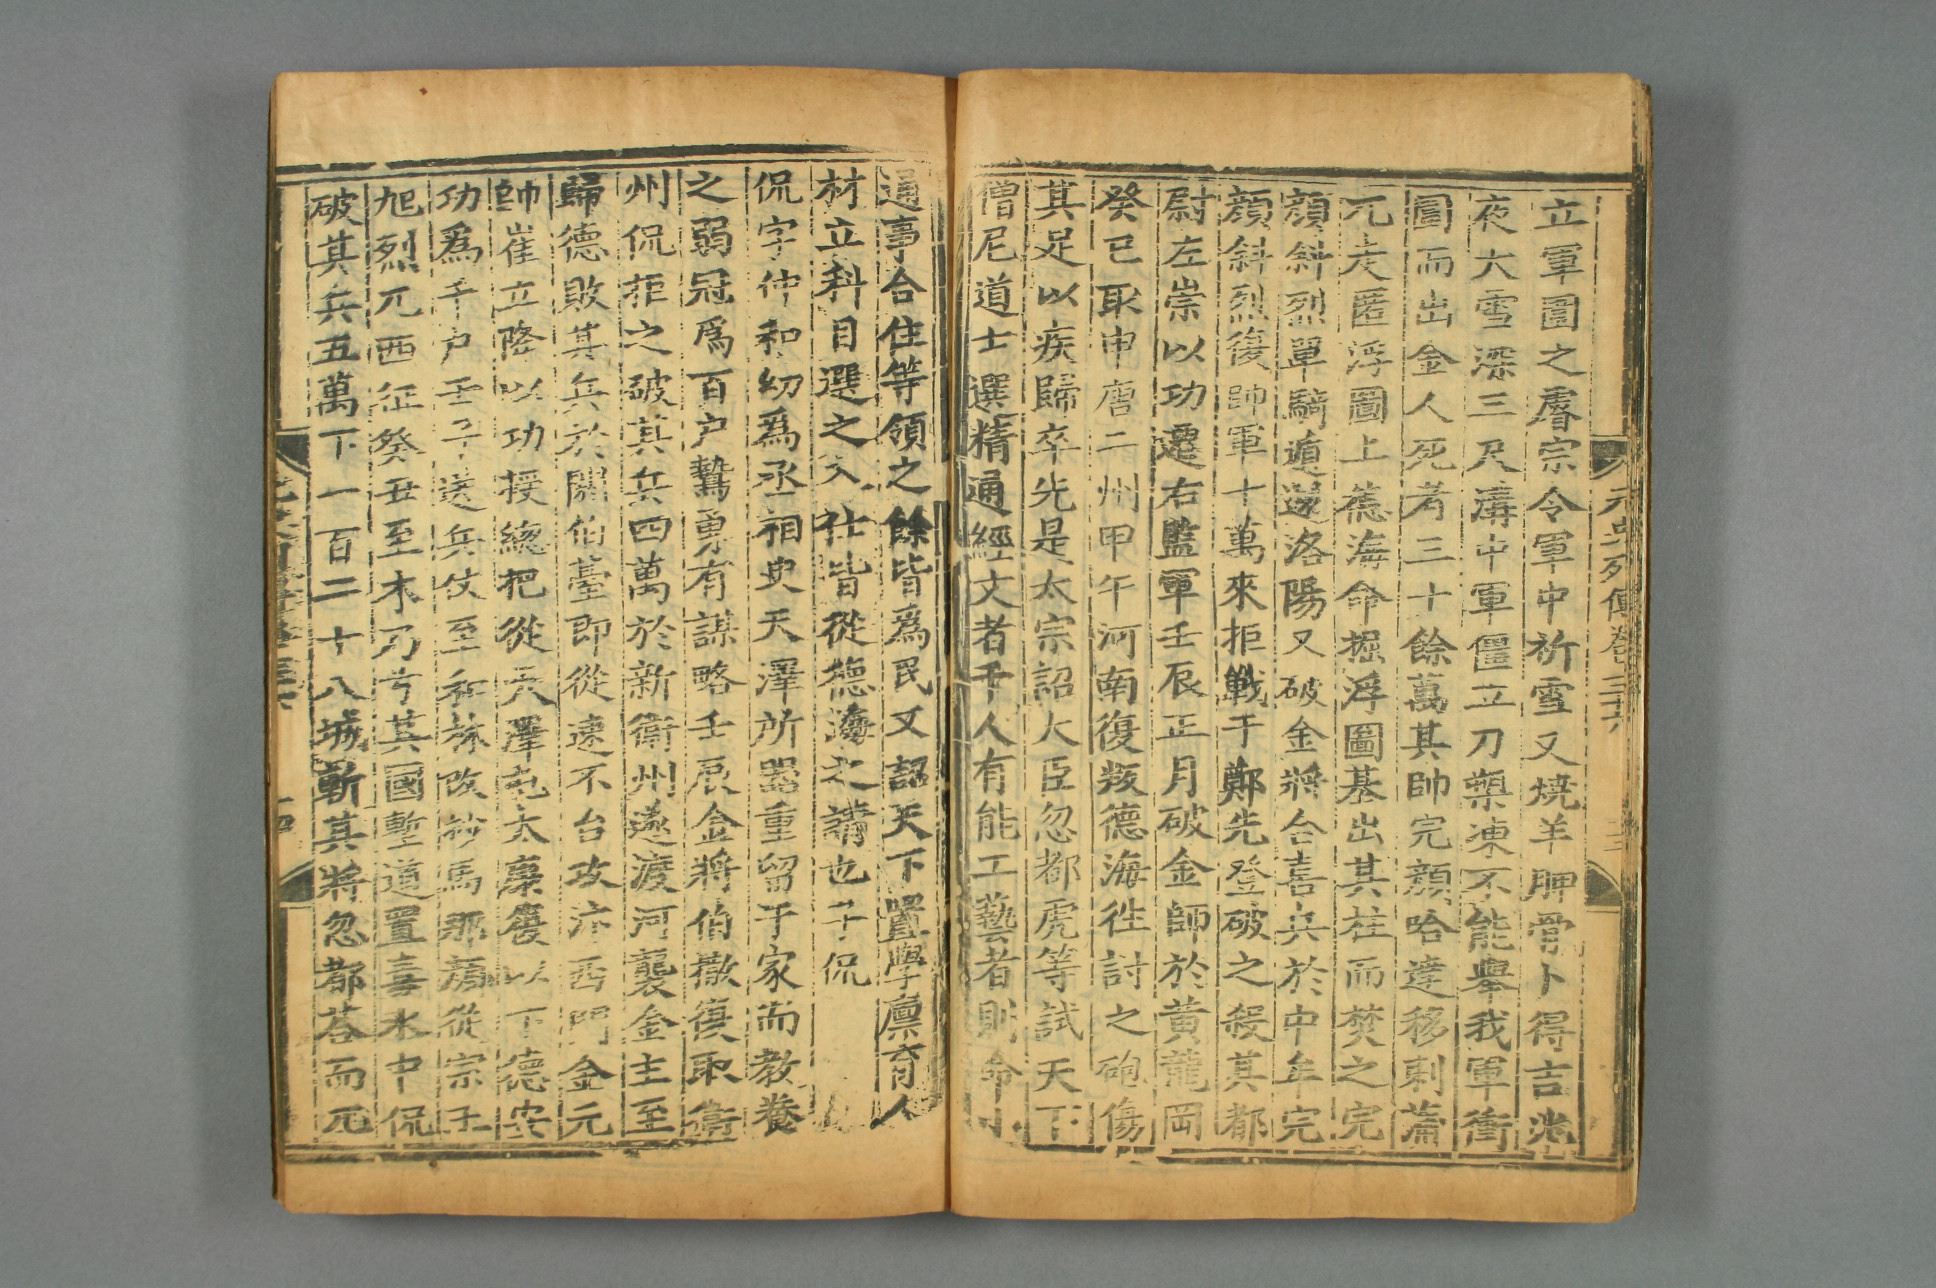 元史列傳卷三十六
立軍圍之睿宗令軍中祈雪又燒羊胛骨卜得吉兆
夜大雪深三尺溝中軍僵立刀槊凍不能舉我軍衝
圍而出金人死者三十餘萬其帥完顏哈達移剌蒲
兀走匿浮圖上德海命掘浮圖基出其柱而焚之完
顏斜烈單騎遁還洛陽又破金將合喜兵於中牟完
顏斜烈復帥軍十萬來拒戰于鄭先登破之殺其都
尉左崇以功遷右監軍壬辰正月破金師於黃龍岡
癸巳取申唐二州甲午河南復叛德海往討之砲傷
其足以疾歸卒先是太宗詔大臣忽都虎等試天下
僧尼道士選精通經文者千人有能工藝者則命
通事合住等領之餘皆爲民又詔天下置學廩育人
材立科目選之入仕皆從德海之請也子侃
侃字仲和幼爲丞相史天澤所器重留于家而教養
之弱冠爲百户鷙勇有謀略壬辰金將伯撒復取衛
州侃拒之破其兵四萬於新衛州遂渡河襲金主至
歸德敗其兵於閼伯臺即從速不台攻汴西門金元
帥崔立降以功授總把從天澤屯太康復以下德安
功爲千户壬子送兵仗至和林改抄馬那顏從宗王
旭烈兀西征癸丑至木乃兮其國塹道置毒水中侃
破其兵五萬下一百二十八城斬其將忽都荅而兀